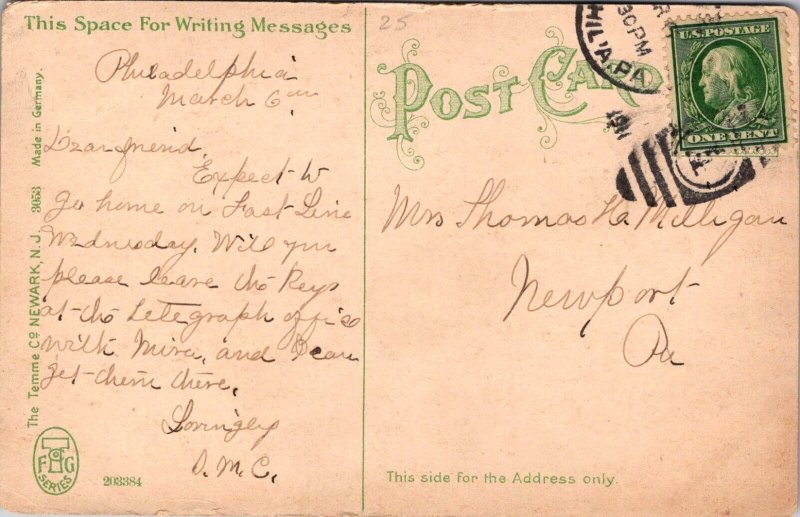 This Space For Writing Messages
25
Philadelphia
March 6
Dear friend
Expect to
go home on Fast Line
Wednesday. Will you
please leave the keys
at the telegraph office
with Mira, and I can
get them there.
Lovingly
D.M.C.
Made in Germany.
3053
The Temme Co NEWARK, N.J.
F G
SERIES
203384
POST CARD
PHIL'A. PA
30 PM
1911
U.S. POSTAGE
ONE CENT
Mrs Thomas H. Milligan
Newport
Pa
This side for the Address only.